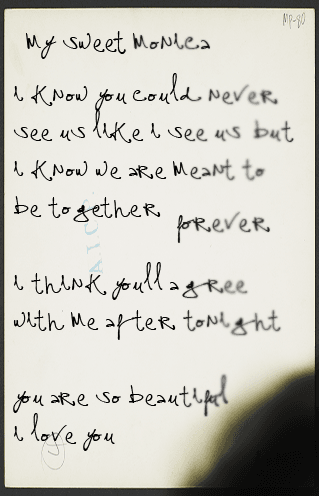 MP-80
My sweet Monica
i know you could never
see us like i see us but
i know we are meant to
be together
forever
i think youll agree
with me after tonight
you are so beautiful
i love you